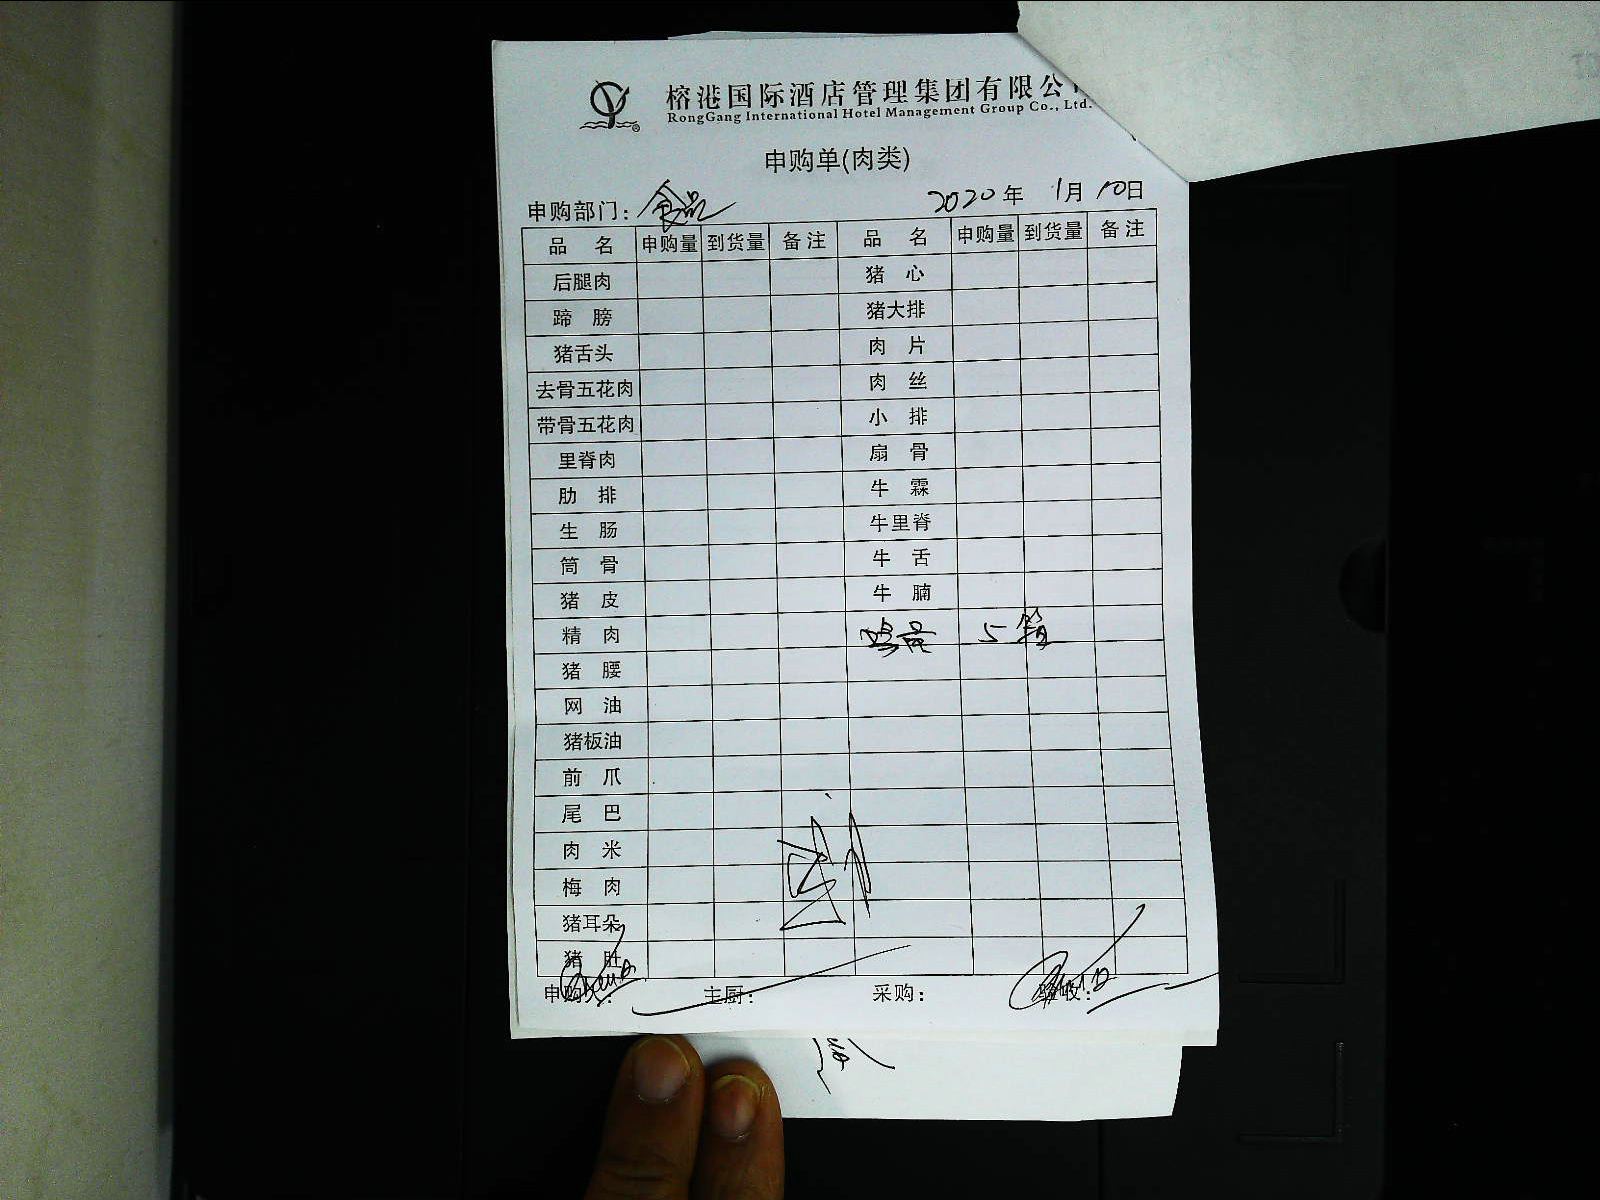 榕港国际酒店管理集团有限公
RongGang International Hotel Management Group Co., Ltd.
申购单(肉类)
申购部门: 食品 2020年 1月10日
品 名 申购量 到货量 备注 品 名 申购量 到货量 备注
后腿肉 猪 心
蹄 膀 猪大排
猪舌头 肉 片
去骨五花肉 肉 丝
带骨五花肉 小 排
里脊肉 扇 骨
肋 排 牛 霖
生 肠 牛里脊
筒 骨 牛 舌
猪 皮 牛 腩
精 肉 5箱
猪 腰
网 油
猪板油
前 爪
尾 巴
肉 米
梅 肉
猪耳朵
猪 肚
申购人: 主厨: 采购: 验收: